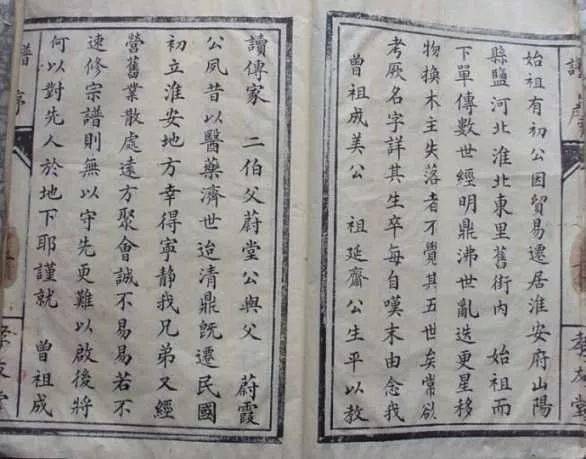 譜序
孝友堂
始祖有初公因貿易遷居淮安府山陽
縣鹽河北淮北東里舊街內 始祖而
下單傳數世經明鼎沸世亂迭更星移
物換木主失落者不覺其五世矣常欲
考厥名字詳其生卒每自嘆末由念我
曾祖成美公 祖延齋公生平以教
讀傳家 二伯父蔚堂公與父 蔚霞
公夙昔以醫藥濟世迨清鼎既遷民國
初立淮安地方幸得寧靜我兄弟又經
營舊業散處遠方聚會誠不易易若不
速修宗譜則無以守先更難以啟後將
何以對先人於地下耶謹就 曾祖成
譜序
孝友堂